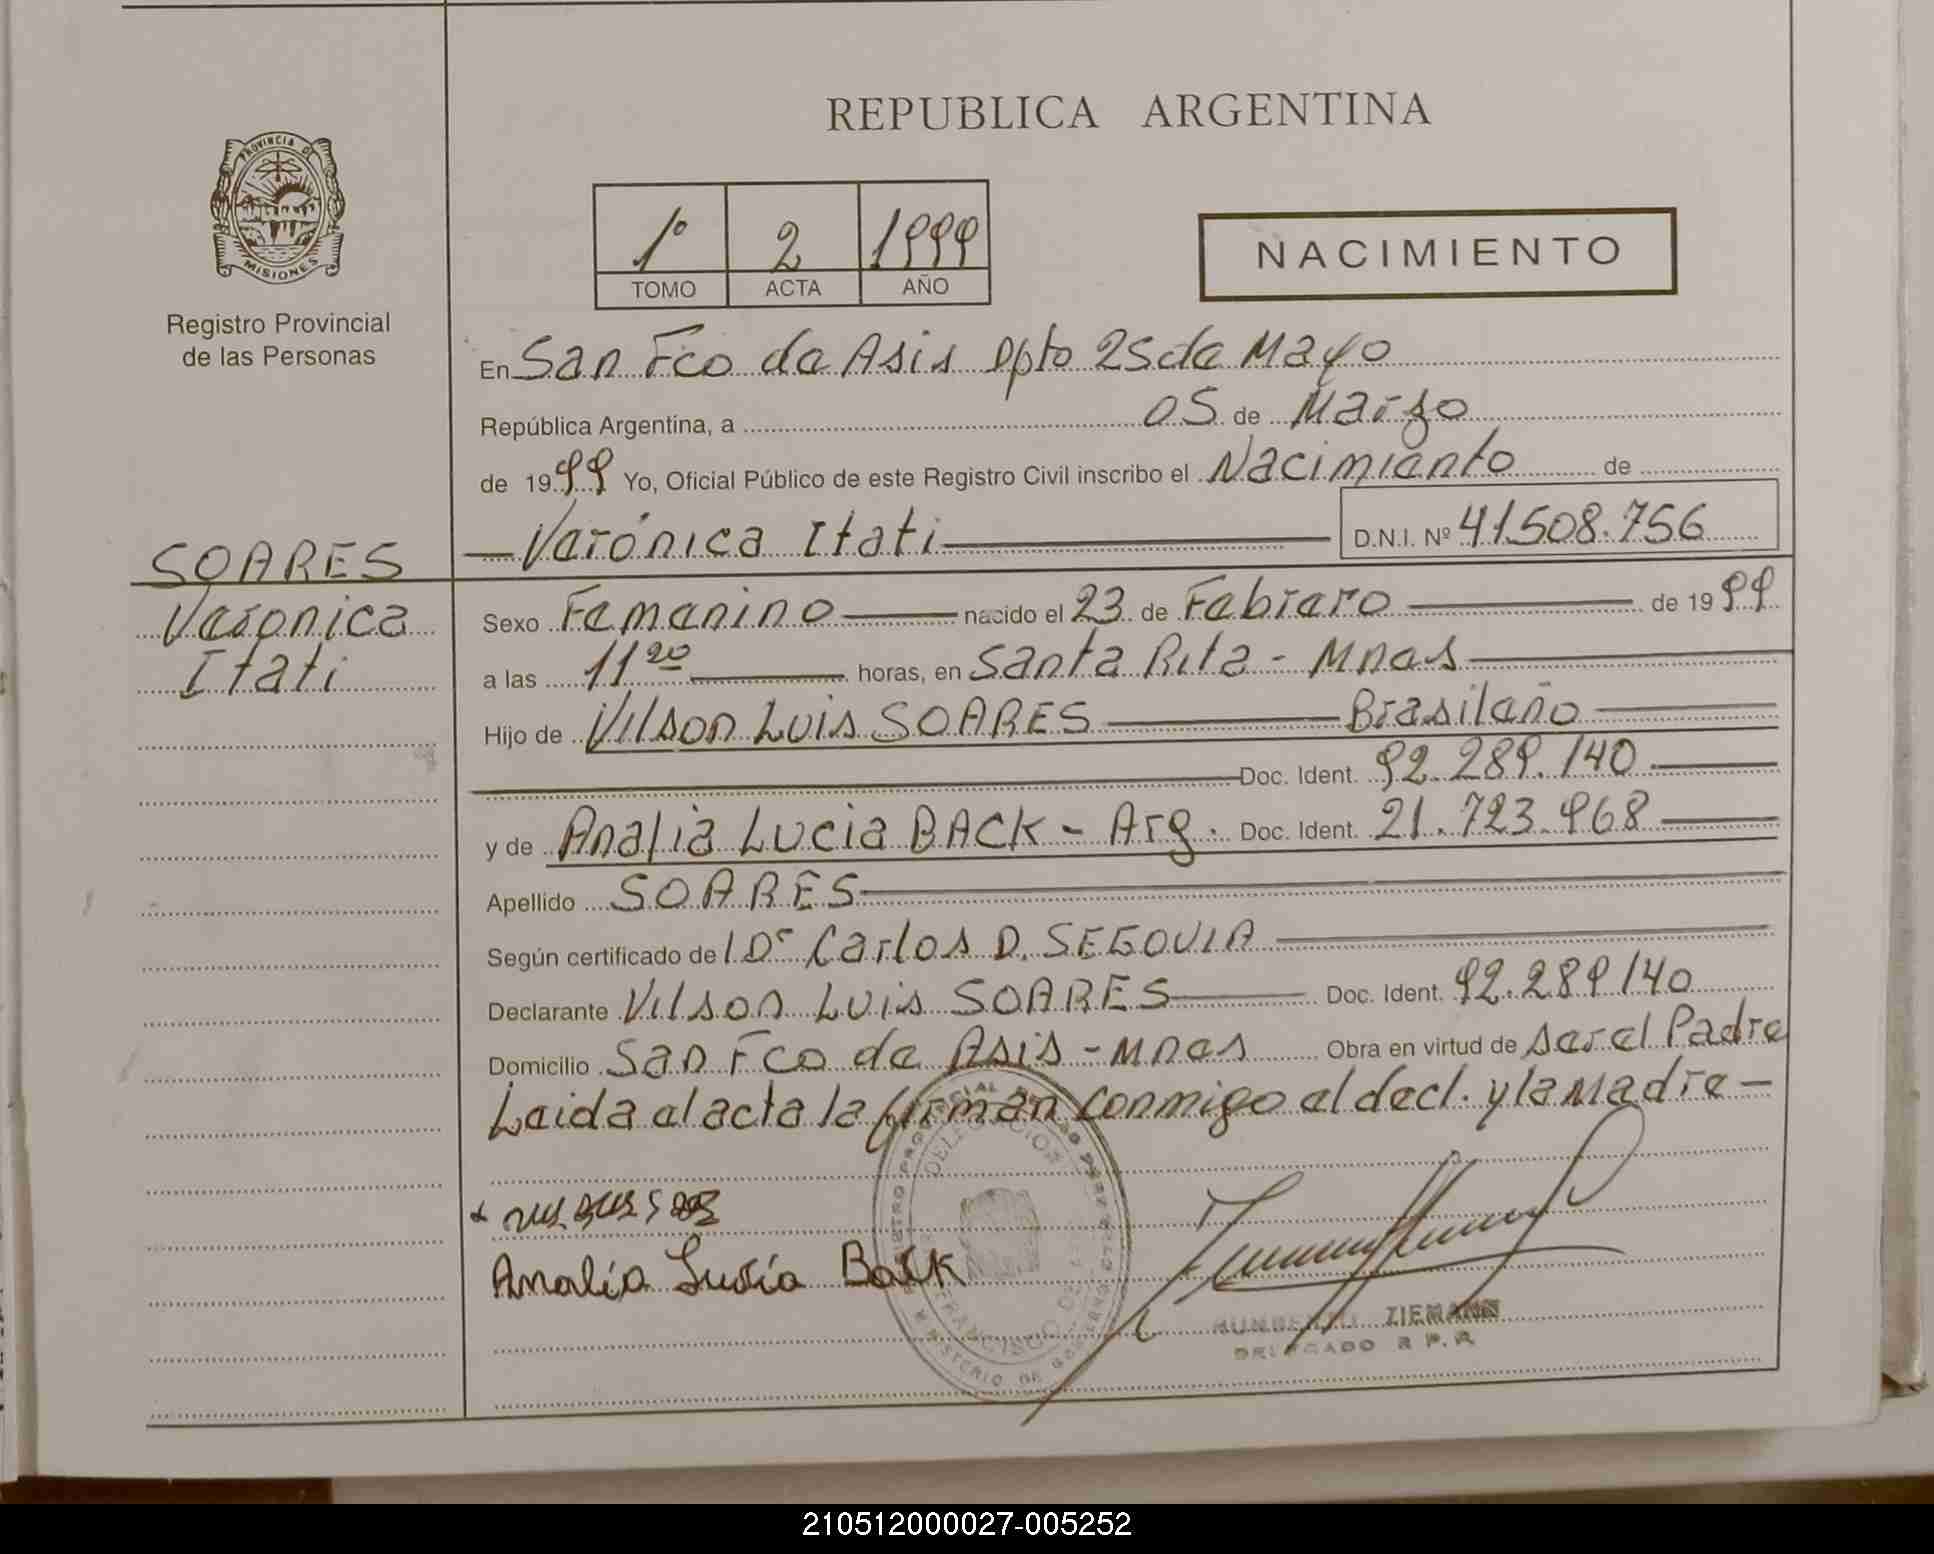 REPUBLICA ARGENTINA
PROVINCIA DE
MISIONES
Registro Provincial
de las Personas
1º 2 1999
TOMO ACTA AÑO
NACIMIENTO
En San Fco de Asis Dpto 25 de Mayo
República Argentina, a 05 de Marzo
de 1999 Yo, Oficial Público de este Registro Civil inscribo el Nacimiento de
Verónica Itati D.N.I. Nº 41.508.756
SOARES
Veronica
Itati
Sexo Femenino nacido el 23 de Febrero de 1999
a las 11 20 horas, en Santa Rita - Mnes
Hijo de Vilson Luis SOARES Brasileño
Doc. Ident. 92.289.140
y de Analia Lucia BACK - Arg. Doc. Ident. 21.723.968
Apellido SOARES
Según certificado de l Dr Carlos D. SEGOVIA
Declarante Vilson Luis SOARES Doc. Ident. 92.289140
Domicilio San Fco de Asis - Mnes Obra en virtud de ser el Padre
Leida el acta la firman conmigo el decl. y la Madre -
Analía Lucía Back
ZIEMANN
DELEGADO R P. P.
210512000027-005252